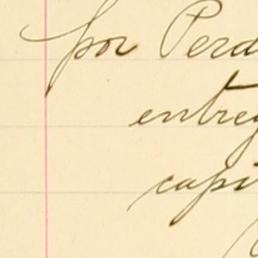 por Perd
entreg
capi